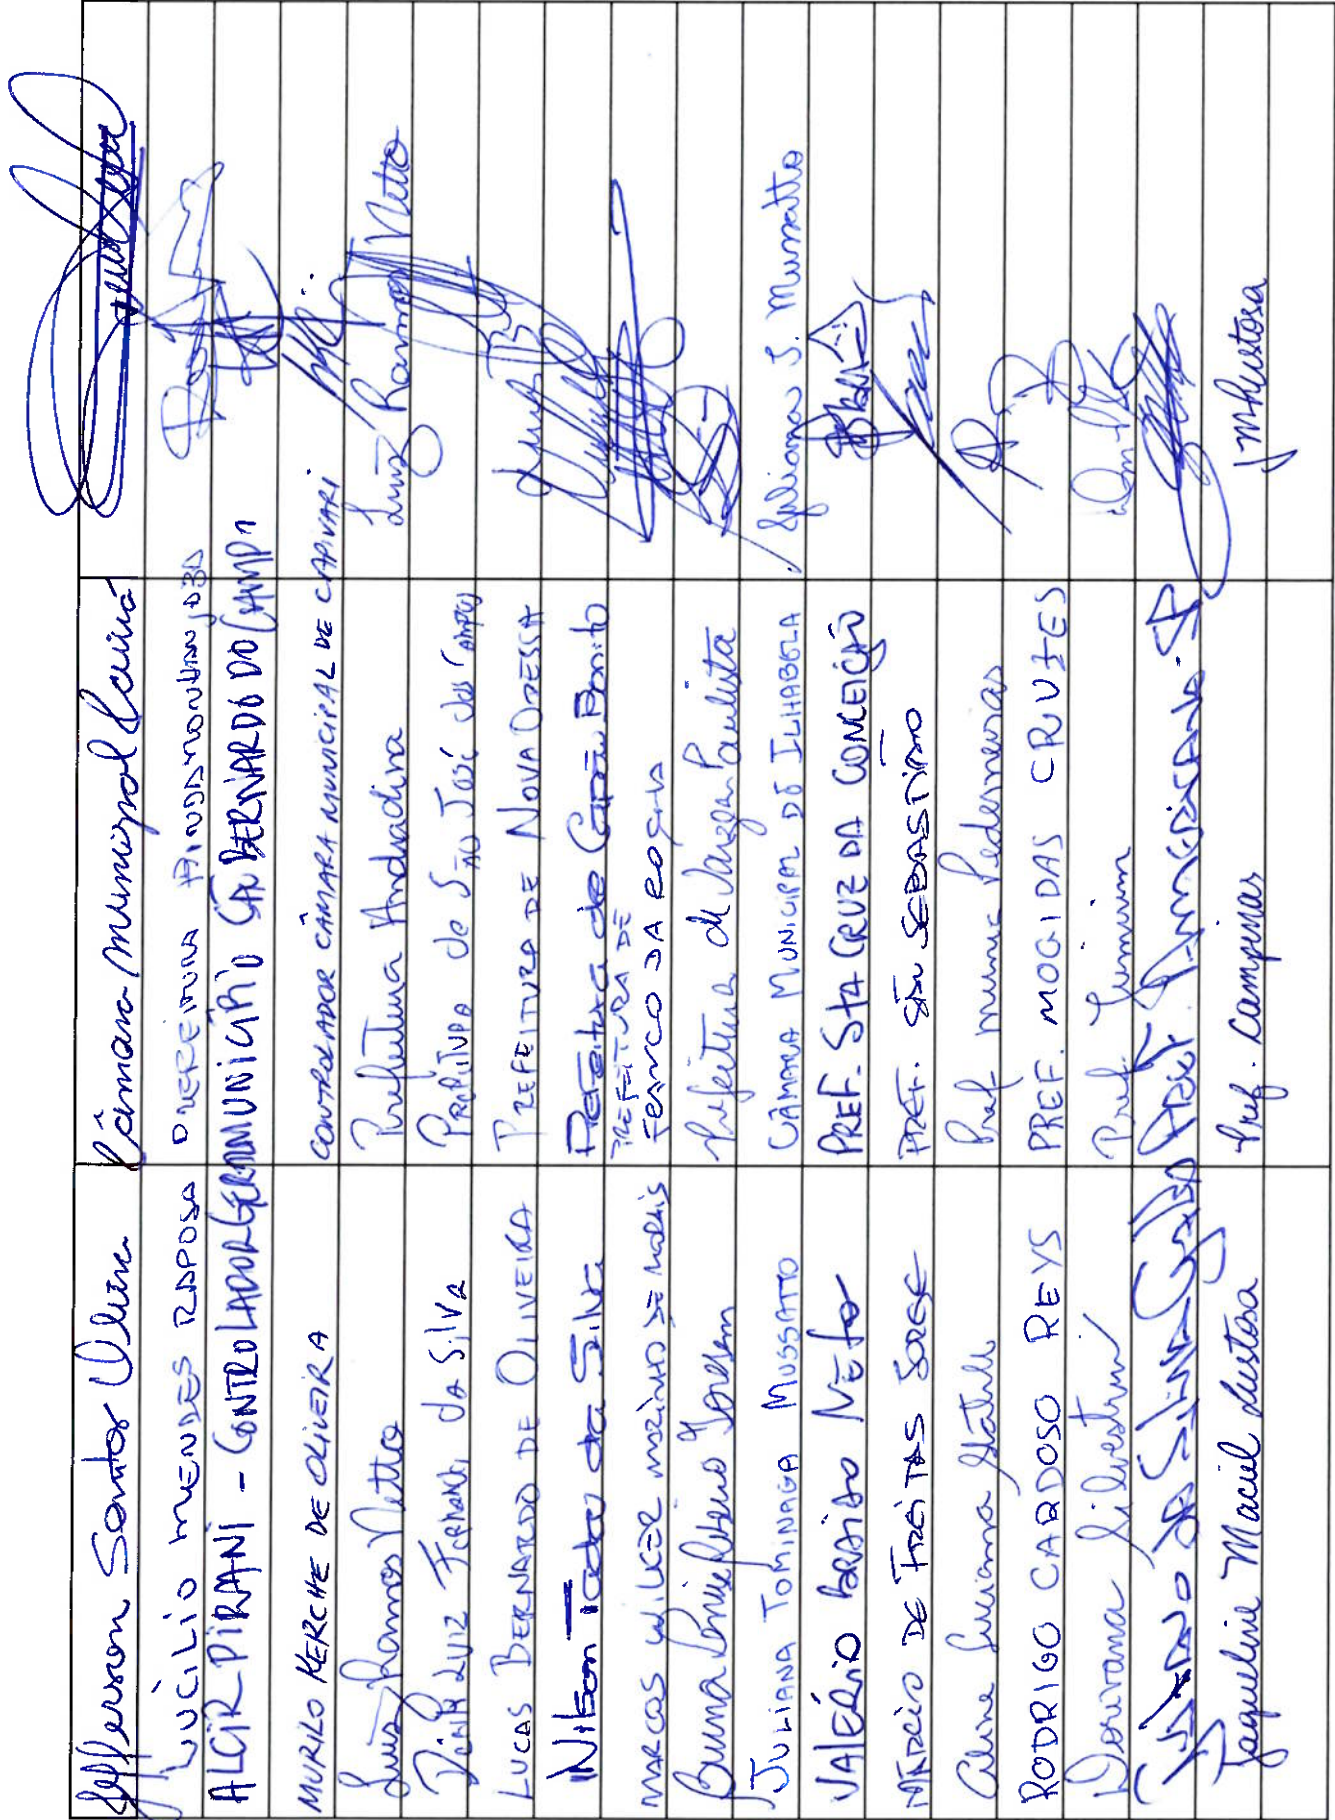 Jefferson Santos Câmara Municipal
LUCÍLIO MENDES RAPOSO PREFEITURA PINDAMONHANGABA
ALCIR PIRANI - CONTROLADOR GERAL MUNICÍPIO SÃO BERNARDO DO CAMPO
MURILO KERCHE DE OLIVEIRA CONTROLADOR CÂMARA MUNICIPAL DE CAPIVARI
Luiz Ramos Netto Prefeitura Andradina Luiz Ramos Netto
LUIZ FERNANDO da Silva PREFEITURA de São José dos Campos
LUCAS BERNARDO DE OLIVEIRA PREFEITURA DE NOVA ODESSA
Nilson Tadeu da Silva Prefeitura de Capão Bonito
MARCOS DE MORAIS PREFEITURA DE FRANCO DA ROCHA
Bruna Ribeiro Prefeitura de Vargem Paulista
JULIANA TOMINAGA MUSSATTO CÂMARA MUNICIPAL DE ILHABELA Juliana S. Mussatto
VALÉRIO BRAIDO NETO PREF. STA CRUZ DA CONCEIÇÃO
MÁRCIO DE FREITAS PREF. SÃO SEBASTIÃO
Aline Luciana Pref. Munic Pederneiras
RODRIGO CARDOSO REYS PREF. MOGI DAS CRUZES
Silvestrini Pref.
DA SILVA PREF. AMERICANA-SP
Jaqueline Maciel Lustosa Pref. Campinas JMLustosa